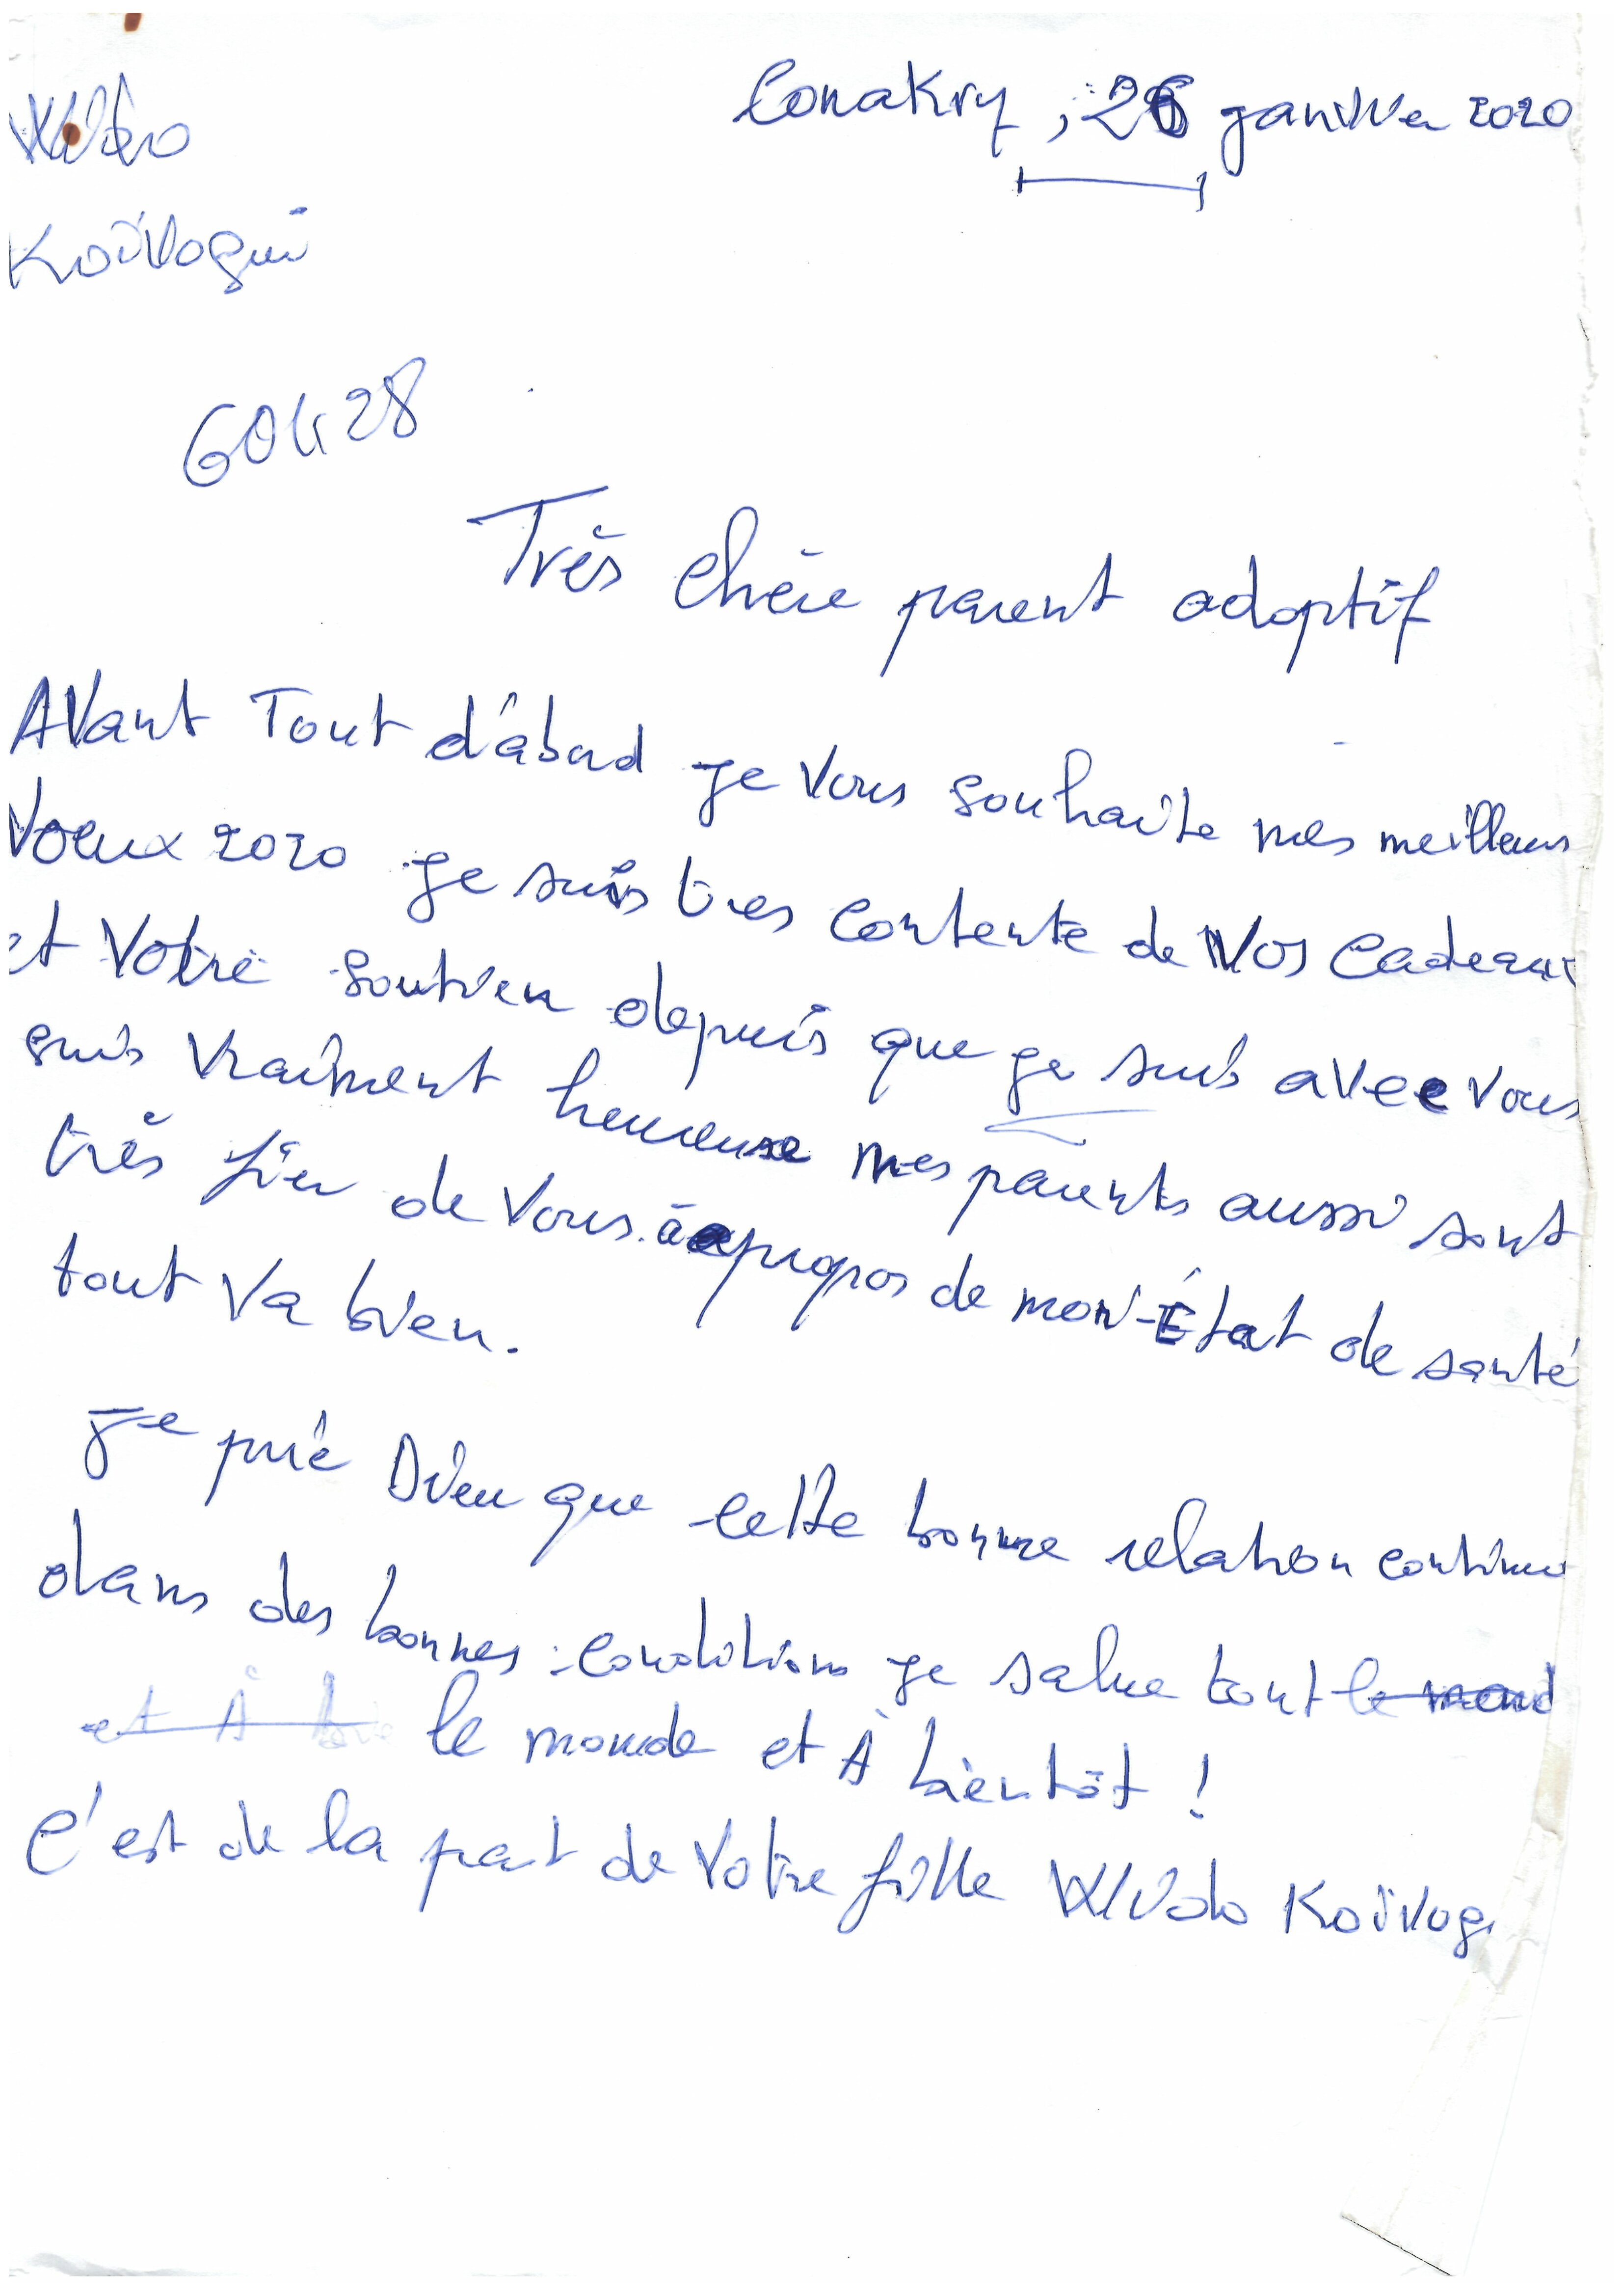 Conakry, 26 janvier 2020
Koïvogui
Très chère parent adoptif
Avant Tout d'abord je vous souhaite mes meilleurs
voeux 2020 je suis tres contente de vos cadeaux
et votre soutien depuis que je suis avec vous
suis vraiment heureuse mes parents aussi sont
très fier de vous à propos de mon État de santé
tout va bien.
Je prie Dieu que cette bonne relation continue
dans des bonnes conditions je salue tout le mond
et À le monde et À bientôt !
C'est de la part de votre fille Koïvog